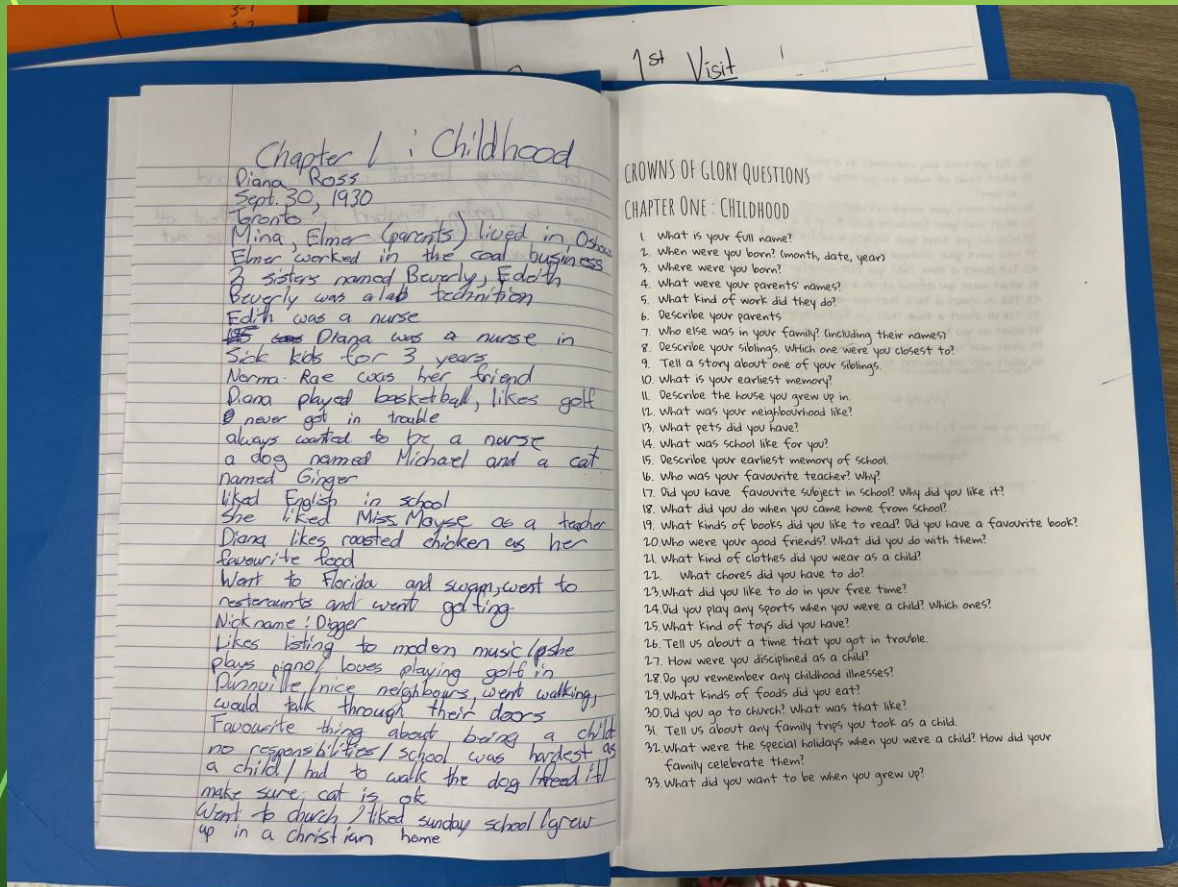 3-1
1st Visit
Chapter 1 : Childhood
Diana Ross
Sept. 30, 1930
Toronto
Mina, Elmer (parents) lived in Oshawa
Elmer worked in the coal business
sisters named Beverly, Edith
Beverly was a lab technition
Edith was a nurse
Diana was a nurse in
Sick kids for 3 years
Norma Rae was her friend
Diana played basketball, likes golf
never got in trouble
always wanted to be a nurse
a dog named Michael and a cat
named Ginger
liked English in school
She liked Miss. Mayse as a teacher
Diana likes roasted chicken as her
favourite food
Went to Florida and swam, went to
resteraunts and went golfing
Nickname : Digger
Likes listing to modern music / she
plays piano / loves playing golf in
Dunnville / nice neighbours, went walking,
would talk through their doors
Favourite thing about being a child
no responsibilities / school was hardest as
a child / had to walk the dog / feed it /
make sure cat is ok
Went to church / liked sunday school / grew
up in a christian home
CROWNS OF GLORY QUESTIONS
CHAPTER ONE : CHILDHOOD
1. What is your full name?
2. When were you born? (month, date, year)
3. Where were you born?
4. What were your parents' names?
5. What kind of work did they do?
6. Describe your parents
7. Who else was in your family? (including their names)
8. Describe your siblings. Which one were you closest to?
9. Tell a story about one of your siblings.
10. What is your earliest memory?
11. Describe the house you grew up in.
12. What was your neighbourhood like?
13. What pets did you have?
14. What was school like for you?
15. Describe your earliest memory of school.
16. Who was your favourite teacher? Why?
17. Did you have favourite subject in school? Why did you like it?
18. What did you do when you came home from school?
19. What kinds of books did you like to read? Did you have a favourite book?
20. Who were your good friends? What did you do with them?
21. What kind of clothes did you wear as a child?
22. What chores did you have to do?
23. What did you like to do in your free time?
24. Did you play any sports when you were a child? Which ones?
25. What kind of toys did you have?
26. Tell us about a time that you got in trouble.
27. How were you disciplined as a child?
28. Do you remember any childhood illnesses?
29. What kinds of foods did you eat?
30. Did you go to church? What was that like?
31. Tell us about any family trips you took as a child.
32. What were the special holidays when you were a child? How did your
family celebrate them?
33. What did you want to be when you grew up?